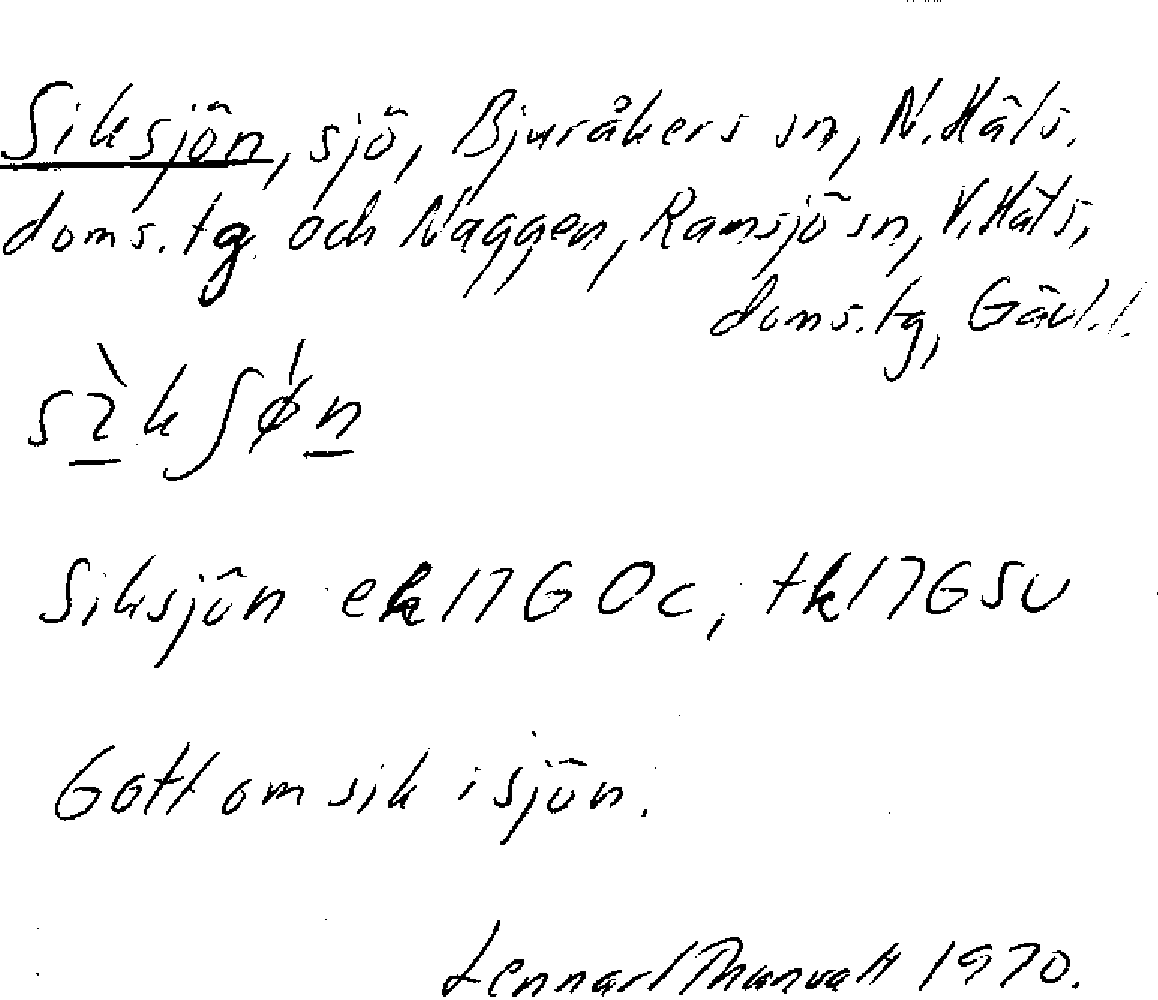 Siksjön, sjö, Bjuråkers sn, N.Häls.
doms.tg och Naggen, Ramsjö sn, V.Häls.
doms.tg, Gävl.l.
Siksjön ek 17G 0c, tk 17G SV
Gott om sik i sjön.
Lennart Thunvall 1970.